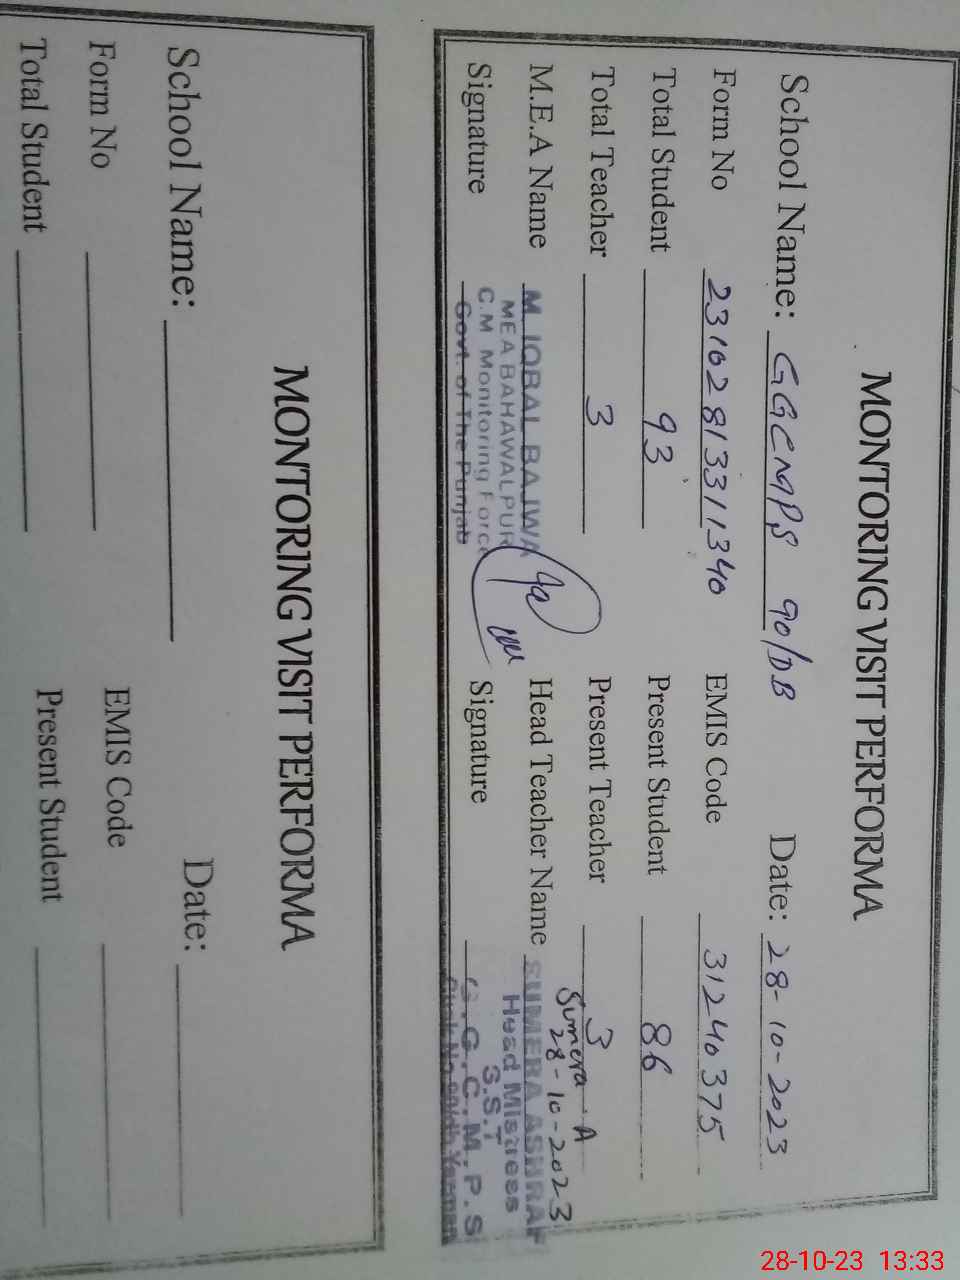 MONTORING VISIT PERFORMA
School Name: GGCMPS 90/DB Date: 28-10-2023
Form No 23102813311340 EMIS Code 31240375
Total Student 93 Present Student 86
Total Teacher 3 Present Teacher 3
Sumera A
28-10-2023
M.E.A Name M. IQBAL BAJWA Head Teacher Name SUMERA ASHRAF
MEA BAHAWALPUR Head Mistress
Signature C.M Monitoring Force Signature S.S.T
Govt. of The Punjab G.G.C.M.P.S
Chak No 90/db Yazman
MONTORING VISIT PERFORMA
School Name: Date:
Form No EMIS Code
Total Student Present Student
28-10-23 13:33